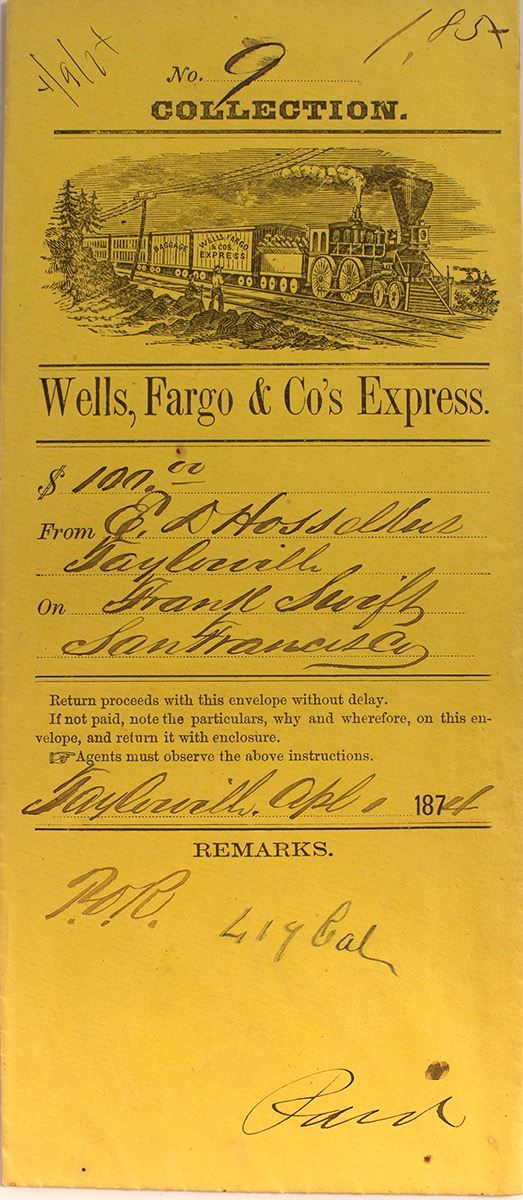 1,85
No. 9
COLLECTION.
BAGGAGE
WELLS, FARGO
& CO'S
EXPRESS
Wells, Fargo & Co's Express.
$ 100.00
From E. D Hosselkus
Taylorville
On Frank Swift
San Francisco
Return proceeds with this envelope without delay.
If not paid, note the particulars, why and wherefore, on this en-
velope, and return it with enclosure.
☞Agents must observe the above instructions.
Taylorville. Apl 1874
REMARKS.
P.O.R. 419 Cal
Paid